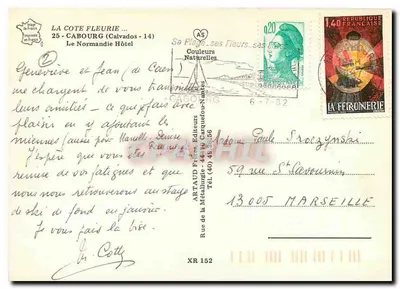 LA COTE FLEURIE ...
25 - CABOURG (Calvados - 14)
Le Normandie Hôtel
AS
Couleurs
Naturelles
Sa Plage, ses fleurs, ses
6-7-82
0,20
1,40 REPUBLIQUE FRANCAISE
LA FERRONERIE
2
Geneviève et Jean (de Caen)
me chargent de vous transmettre
leurs amitiés - ce que je fais avec
plaisir en y ajoutant les
miennes (aussi pour
J'espère que vous êtes
remise de vos fatigues et que
nous nous retrouverons au stage
de ski de fond en janvier.
Je vous fais la bise.
M. Cotte
ARTAUD Frères, Editeurs
Rue de la Métallurgie - 44 Carquefou-Nantes
Paule Proczynski
59 rue St Savournin
13005 MARSEILLE
XR 152